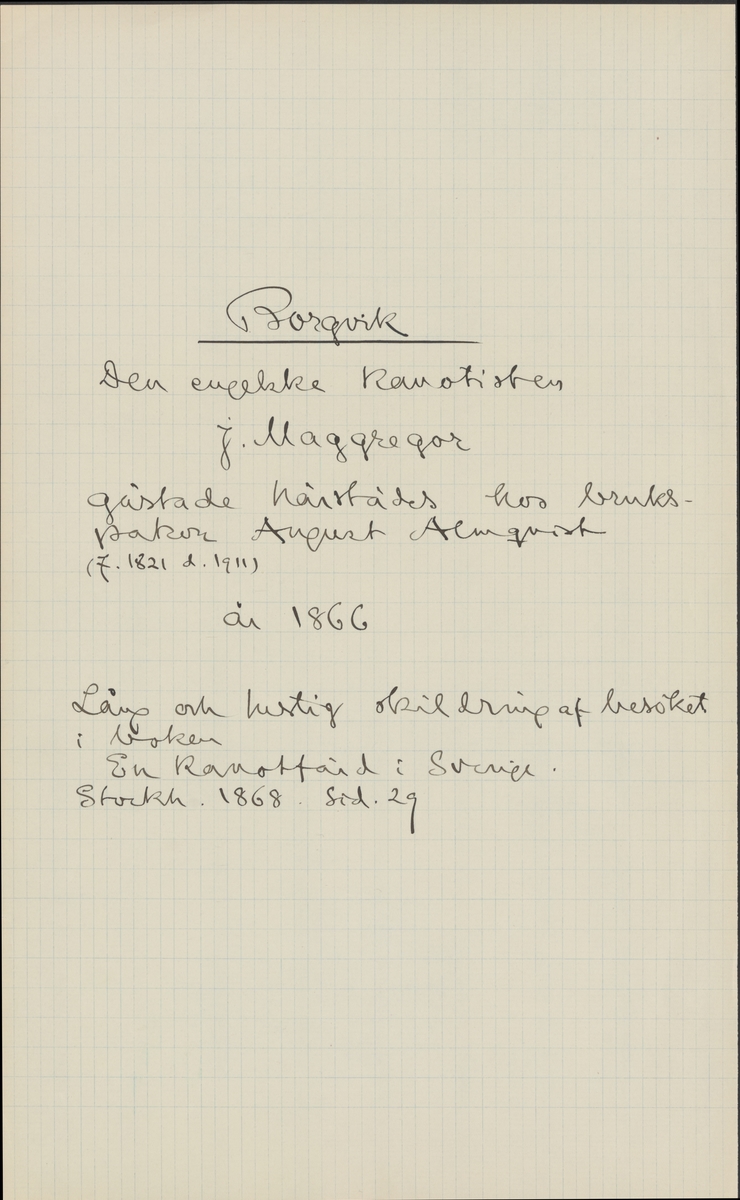 Borgvik
Den engelske kanotisten
J. Maggregor
gästade härstädes hos bruks-
patron August Almqvist
(f. 1821 d. 1911)
år 1866
Lång och lustig skildring af besöket
i boken
En Kanotfärd i Sverige.
Stockh. 1868. Sid. 29